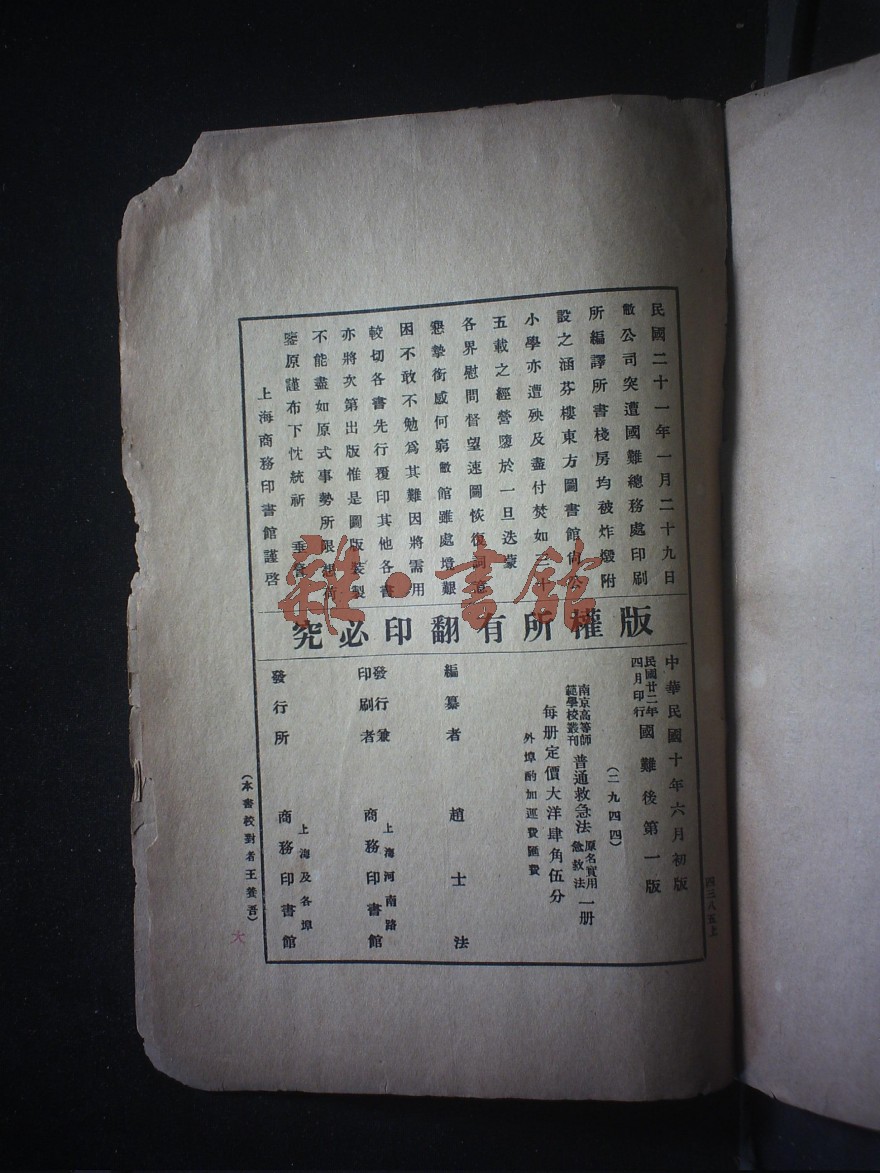 民國二十一年一月二十九日
敝公司突遭國難總務處印刷
所編譯所書棧房均被炸燬附
設之涵芬樓東方圖書館尚公
小學亦遭殃及盡付焚如三十
五載之經營墮於一旦迭蒙
各界慰問督望速圖恢復詞意
懇摯銜感何窮敝館雖處境艱
困不敢不勉爲其難因將需用
較切各書先行覆印其他各書
亦將次第出版惟是圖版裝製
不能盡如原式事勢所限想荷
鑒原謹布下忱統祈 垂詧
上海商務印書館謹啓
版權所有翻印必究
中華民國十年六月初版
民國廿二年四月印行 國難後第一版
(二九四四)
南京高等師範學校叢刊 普通救急法 原名實用急救法 一册
每册定價大洋肆角伍分
外埠酌加運費匯費
編纂者 趙士法
發行兼印刷者 上海河南路 商務印書館
發行所 上海及各埠 商務印書館
(本書校對者王養吾)
四三八五上
大
雜·書館